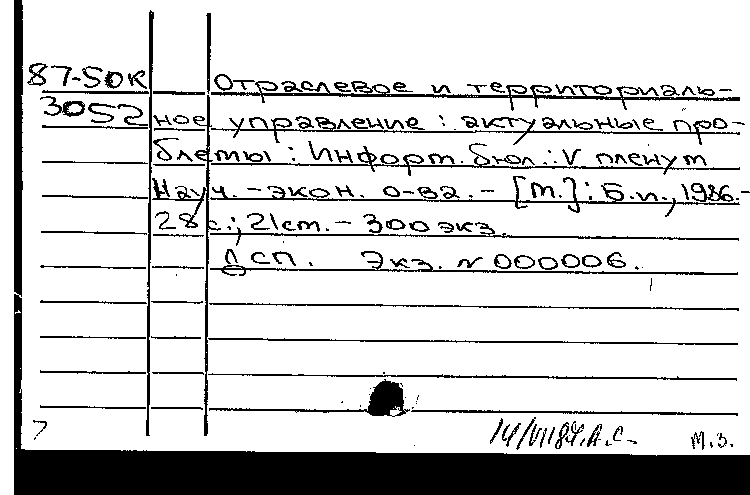 87-50К Отраслевое и территориаль-
3052 ное управление : актуальные про-
блемы : Информ. бюл. : V пленум
Науч. - экон. о-ва. - [М.] : Б.и., 1986. -
28 с.; 21 см. - 300 экз.
ДСП. Экз. N 000006.
7 А.С. М.З.